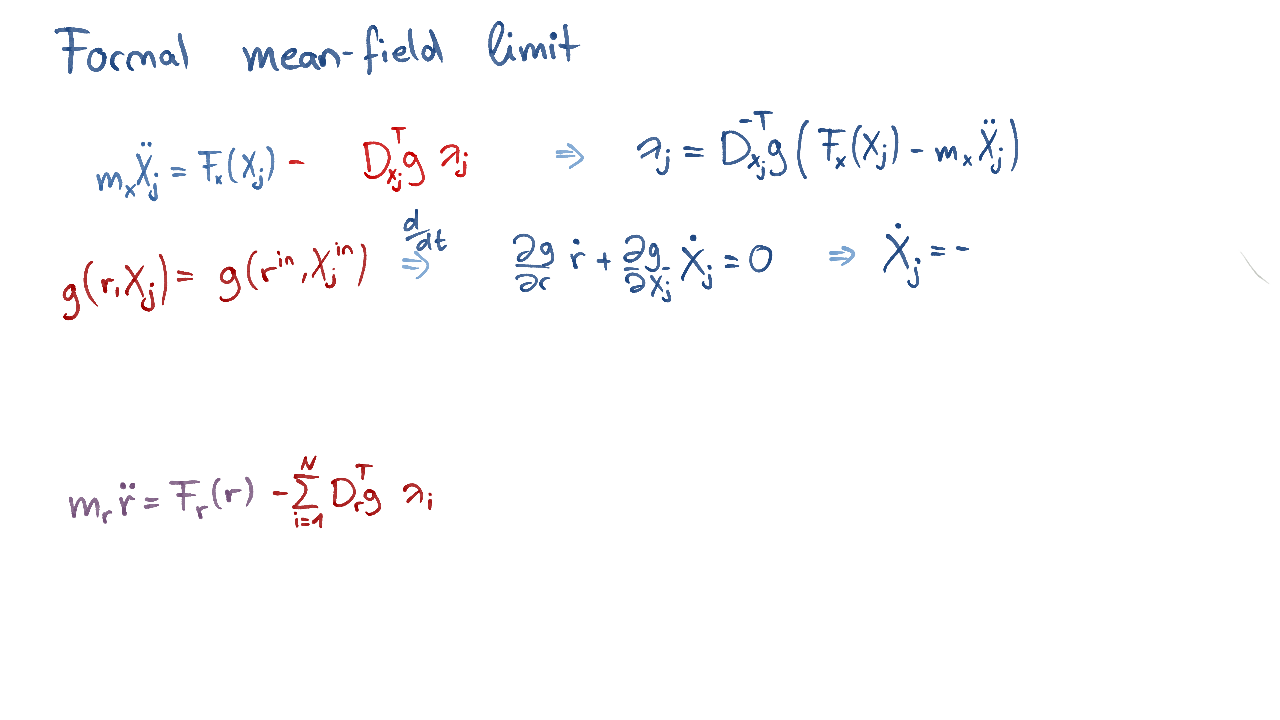 Formal mean-field limit
m_x Ẍ_j = F_x(X_j) - D_{x_j}^T g λ_j ⇒ λ_j = D_{x_j}^{-T} g (F_x(X_j) - m_x Ẍ_j)
g(r, X_j) = g(r^{in}, X_j^{in}) d/dt ⇒ ∂g/∂r ṙ + ∂g/∂X_j Ẋ_j = 0 ⇒ Ẋ_j = -
m_r r̈ = F_r(r) - ∑_{i=1}^N D_r^T g λ_i